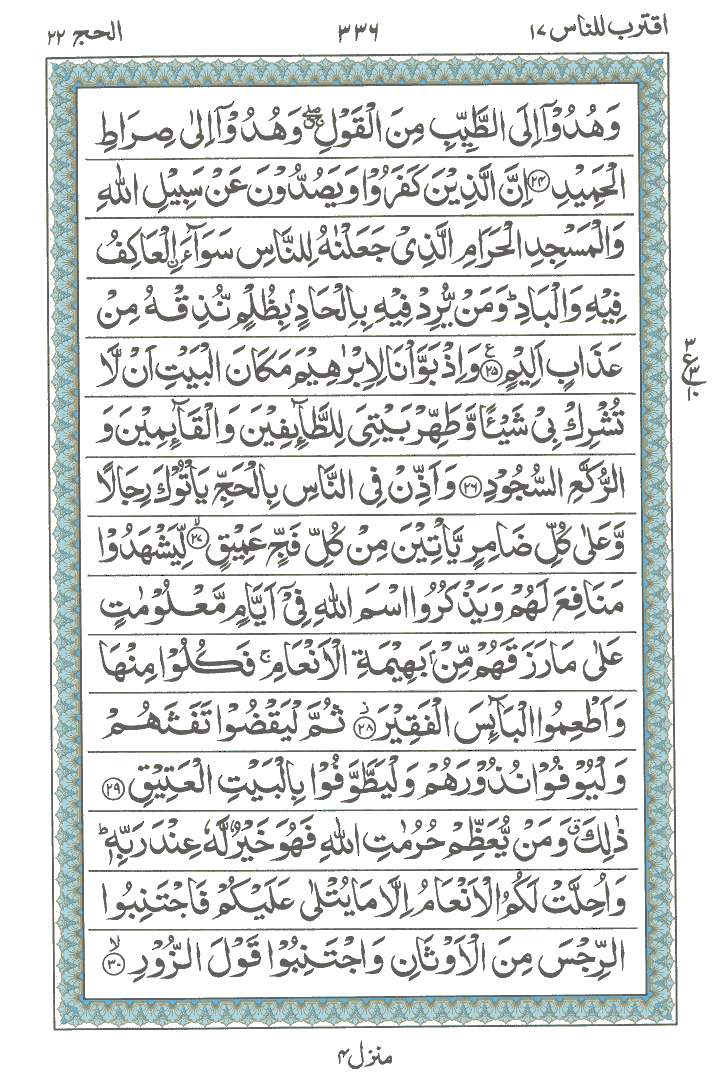 اقترب للناس ١٧
٣٣٦
الحج ٢٢
وَهُدُوْۤا اِلَى الطَّيِّبِ مِنَ الْقَوْلِ ۖۚ وَهُدُوْۤا اِلٰى صِرَاطِ
الْحَمِيْدِ ﴿٢٤﴾ اِنَّ الَّذِيْنَ كَفَرُوْا وَيَصُدُّوْنَ عَنْ سَبِيْلِ اللّٰهِ
وَالْمَسْجِدِ الْحَرَامِ الَّذِيْ جَعَلْنٰهُ لِلنَّاسِ سَوَآءَ ࣙالْعَاكِفُ
فِيْهِ وَالْبَادِ ؕ وَمَنْ يُّرِدْ فِيْهِ بِاِلْحَادٍۭ بِظُلْمٍ نُّذِقْهُ مِنْ
عَذَابٍ اَلِيْمٍ ﴿٢٥﴾ۧ وَاِذْ بَوَّاْنَا لِاِبْرٰهِيْمَ مَكَانَ الْبَيْتِ اَنْ لَّا
تُشْرِكْ بِيْ شَيْـًٔا وَّطَهِّرْ بَيْتِيَ لِلطَّآئِفِيْنَ وَالْقَآئِمِيْنَ وَ
الرُّكَّعِ السُّجُوْدِ ﴿٢٦﴾ وَاَذِّنْ فِى النَّاسِ بِالْحَجِّ يَاْتُوْكَ رِجَالًا
وَّعَلٰى كُلِّ ضَامِرٍ يَّاْتِيْنَ مِنْ كُلِّ فَجٍّ عَمِيْقٍ ﴿٢٧﴾ۙ لِّيَشْهَدُوْا
مَنَافِعَ لَهُمْ وَيَذْكُرُوا اسْمَ اللّٰهِ فِيْۤ اَيَّامٍ مَّعْلُوْمٰتٍ
عَلٰى مَا رَزَقَهُمْ مِّنْۢ بَهِيْمَةِ الْاَنْعَامِ ۚ فَكُلُوْا مِنْهَا
وَاَطْعِمُوا الْبَآئِسَ الْفَقِيْرَ ﴿٢٨﴾ؗ ثُمَّ لْيَقْضُوْا تَفَثَهُمْ
وَلْيُوْفُوْا نُذُوْرَهُمْ وَلْيَطَّوَّفُوْا بِالْبَيْتِ الْعَتِيْقِ ﴿٢٩﴾
ذٰلِكَ ۗ وَمَنْ يُّعَظِّمْ حُرُمٰتِ اللّٰهِ فَهُوَ خَيْرٌ لَّهٗ عِنْدَ رَبِّهٖ ؕ
وَاُحِلَّتْ لَكُمُ الْاَنْعَامُ اِلَّا مَا يُتْلٰى عَلَيْكُمْ فَاجْتَنِبُوا
الرِّجْسَ مِنَ الْاَوْثَانِ وَاجْتَنِبُوْا قَوْلَ الزُّوْرِ ﴿٣٠﴾ۙ
٣
ع
٣
١٠
منزل ٤